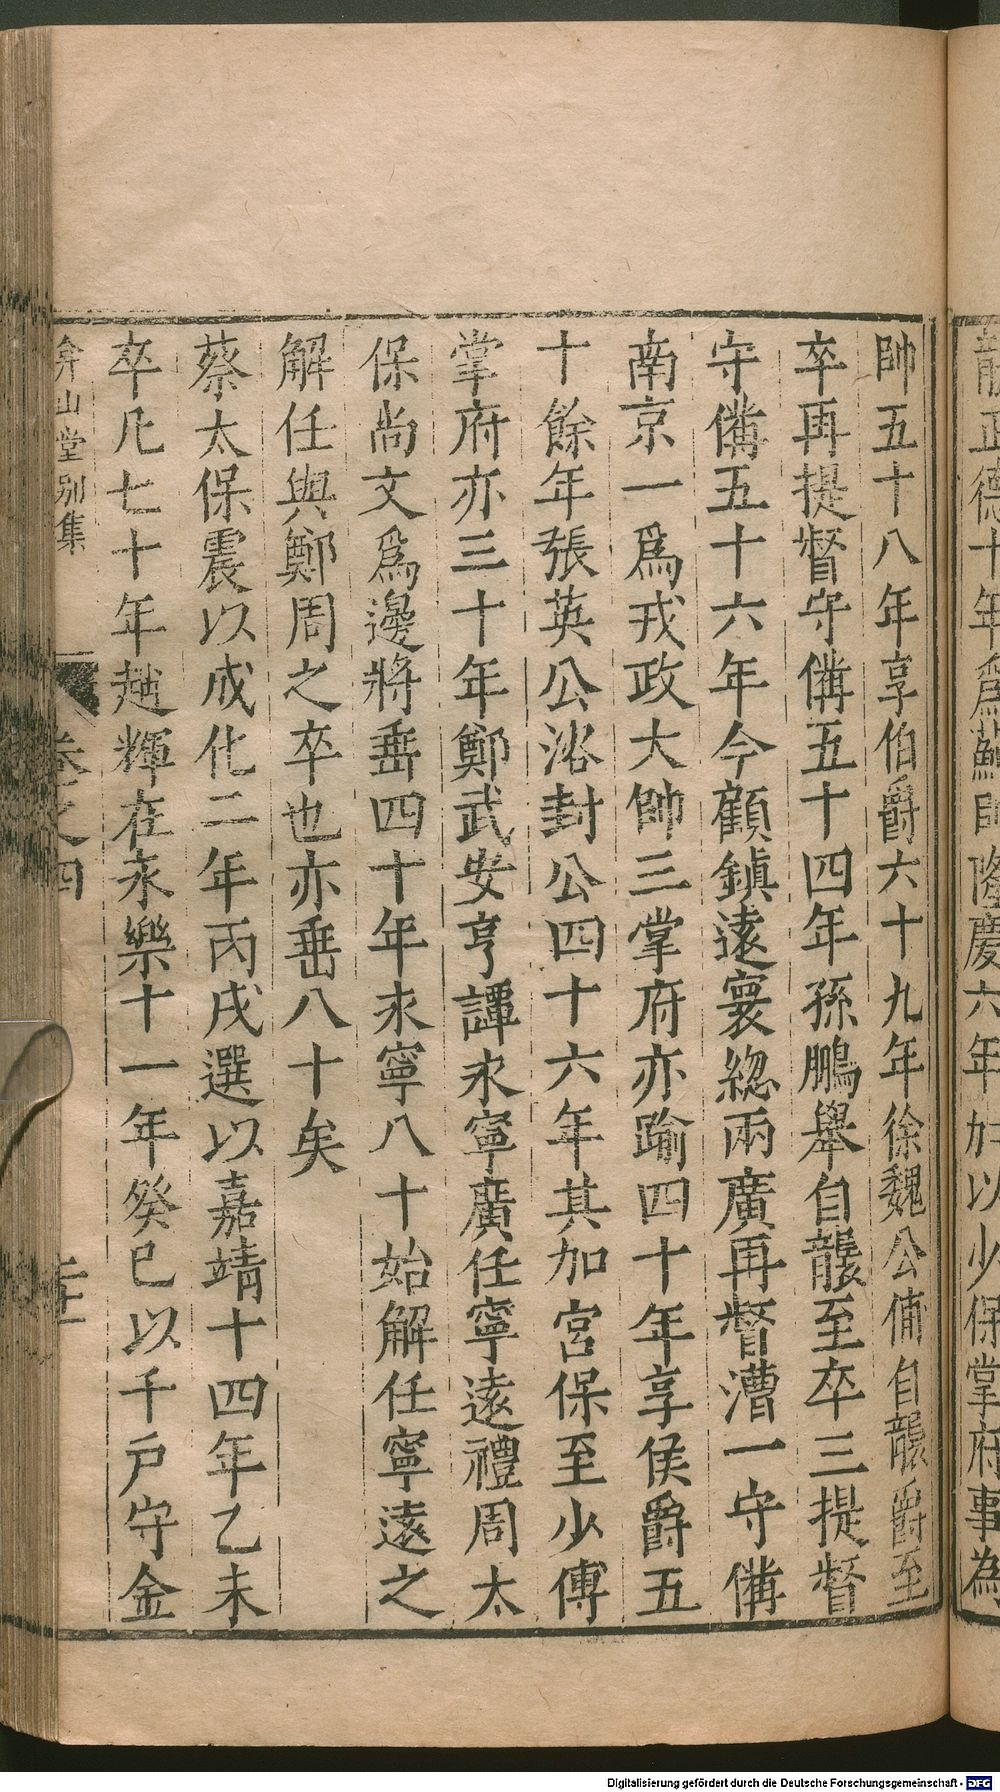 龍正德十年爲蘇帥隆慶六年加以少保掌府事為
帥五十八年享伯爵六十九年徐魏公俌自襲爵至
卒再提督守備五十四年孫鵬舉自襲至卒三提督
守備五十六年今顧鎮遠寰総兩廣再督漕一守備
南京一爲戎政大帥三掌府亦踰四十年享侯爵五
十餘年張英公溶封公四十六年其加宮保至少傅
掌府亦三十年鄭武安亨譚永寧廣任寧遠禮周太
保尚文爲邊將垂四十年永寧八十始解任寧遠之
解任與鄭周之卒也亦垂八十矣
蔡太保震以成化二年丙戌選以嘉靖十四年乙未
卒凡七十年趙輝在永樂十一年癸巳以千戶守金
弇山堂别集
卷之四
Digitalisierung gefördert durch die Deutsche Forschungsgemeinschaft - DFG